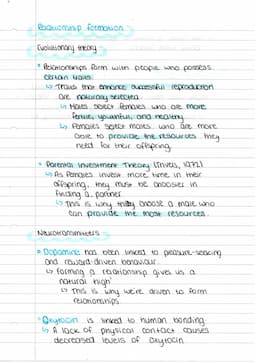 Relationship formation
Evolutionary theory
• Relationships form with people who possess
certain traits.
↳ Traits that enhance successful reproduction
are naturally selected.
↳ Males select females who are more
fertile, youthful, and healthy.
↳ Females select males who are more
able to provide the resources they
need for their offspring.
• Parental Investment Theory (Trivers, 1972)
↳ As females invest more time in their
offspring, they must be choosier in
finding a partner.
↳ This is why they choose a male who
can provide the most resources.
Neurotransmitters
• Dopamine has been linked to pleasure-seeking
and reward-driven behaviour.
↳ forming a relationship gives us a
'natural high'
↳ This is why we're driven to form
relationships.
• Oxytocin is linked to human bonding.
↳ A lack of physical contact causes
decreased levels of oxytocin.